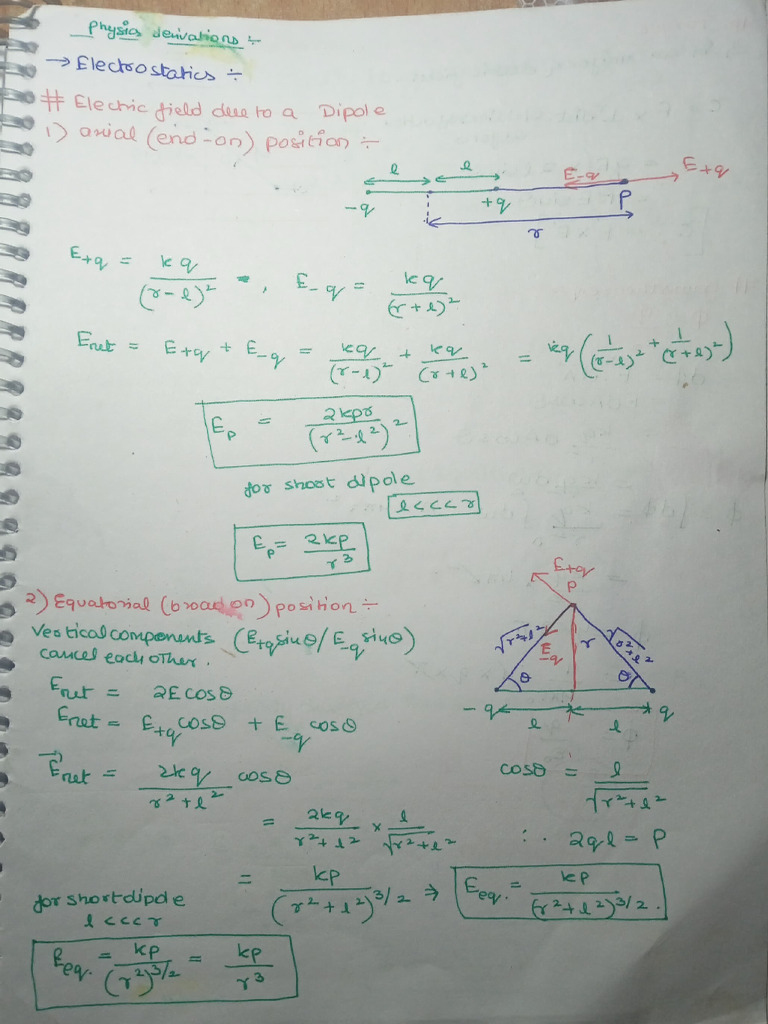 Physics derivations :-
→ Electrostatics ÷
# Electric field due to a Dipole
1) axial (end-on) position ÷
l l E-q E+q
-q +q P
r
E+q = kq/(r-l)² , E-q = kq/(r+l)²
Enet = E+q + E-q = kq/(r-l)² + kq/(r+l)² = kq(1/(r-l)² + 1/(r+l)²)
Ep = 2kpr/(r²-l²)²
for short dipole
l<<<r
Ep = 2kp/r³
E+q
P
2) Equatorial (broad on) position ÷
Vertical components (E+q sinθ / E-q sinθ)
cancel each other.
√r²+l² E-q r √r²+l²
θ θ
-q l l q
Enet = 2E cosθ
Enet = E+q cosθ + E-q cosθ
E⃗net = 2kq/r²+l² cosθ cosθ = l/√r²+l²
= 2kq/r²+l² × l/√r²+l² ∴ 2ql = P
= kp/(r²+l²)3/2 ⇒ Eeq. = kp/(r²+l²)3/2.
for short dipole
l<<<r
Eeq. = kp/(r²)3/2 = kp/r³